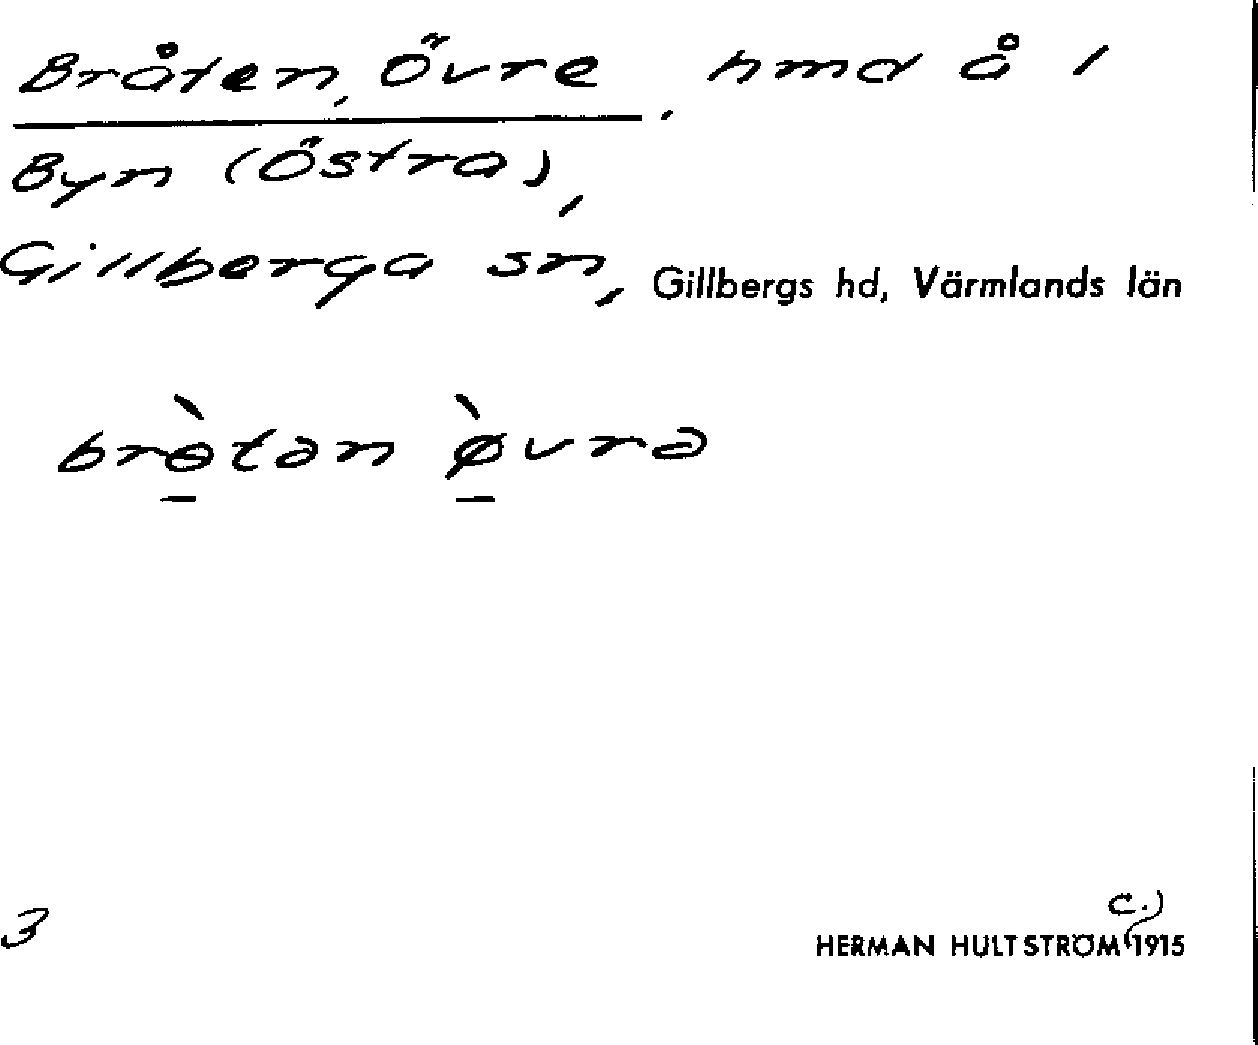 Bråten, Övre, hmd å 1
Byn (Östra),
Gillberga sn, Gillbergs hd, Värmlands län
brɵ̱̀tən ø̱̀vrə
3
HERMAN HULTSTRÖM (c.) 1915